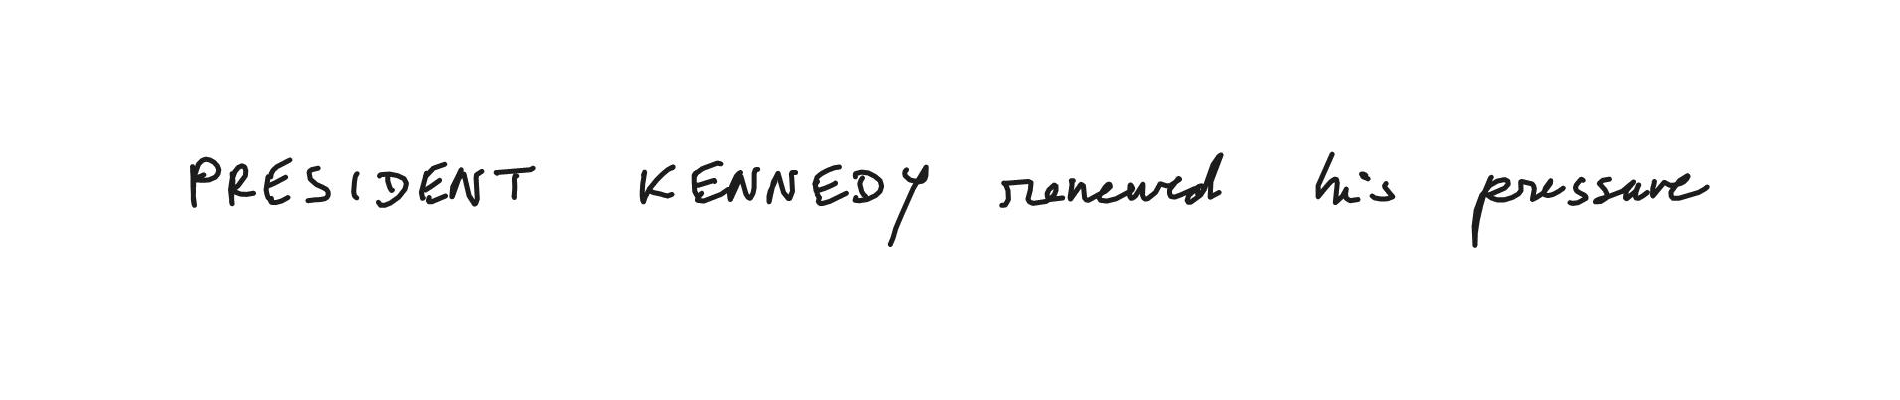 PRESIDENT KENNEDY renewed his pressure